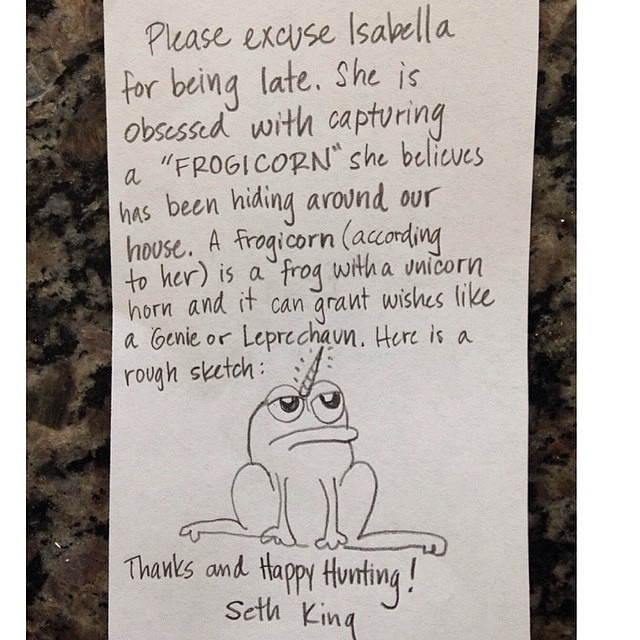 Please excuse Isabella
for being late. She is
obsessed with capturing
a "FROGICORN" she believes
has been hiding around our
house. A frogicorn (according
to her) is a frog with a unicorn
horn and it can grant wishes like
a Genie or Leprechaun. Here is a
rough sketch:
Thanks and Happy Hunting!
Seth King